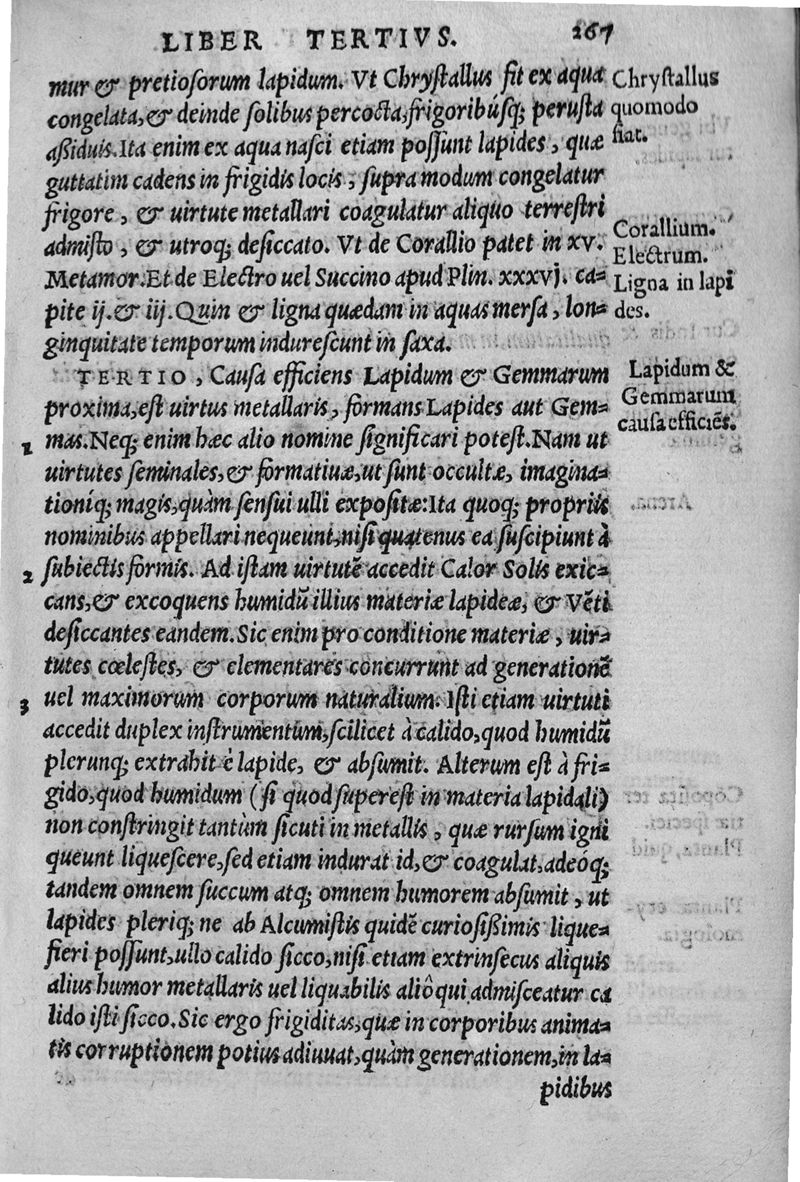 LIBER TERTIVS. 267
mur & pretiosorum lapidum. Vt Chrystallus fit ex aqua
congelata, & deinde solibus percocta, frigoribúsq; perusta
aßiduis. Ita enim ex aqua nasci etiam possunt lapides, quæ
guttatim cadens in frigidis locis, supra modum congelatur
frigore, & uirtute metallari coagulatur aliquo terrestri
admisto, & utroq; desiccato. Vt de Corallio patet in xv.
Metamor. Et de Electro uel Succino apud Plin. xxxvj. ca=
pite ij. & iij. Quin & ligna quædam in aquas mersa, lon=
ginquitate temporum indurescunt in saxa.
TERTIO, Causa efficiens Lapidum & Gemmarum
proxima, est uirtus metallaris, formans Lapides aut Gem=
1 mas. Neq; enim hæc alio nomine significari potest. Nam ut
uirtutes seminales, & formatiuæ, ut sunt occultæ, imagina=
tioníq; magis, quàm sensui ulli expositæ: Ita quoq; propriis
nominibus appellari nequeunt, nisi quatenus ea suscipiunt à
2 subiectis formis. Ad istam uirtutẽ accedit Calor Solis exic=
cans, & excoquens humidũ illius materiæ lapideæ, & Vẽti
desiccantes eandem. Sic enim pro conditione materiæ, uir=
tutes cœlestes, & elementares concurrunt ad generationẽ
3 uel maximorum corporum naturalium. Isti etiam uirtuti
accedit duplex instrumentum, scilicet à calido, quod humidũ
plerunq; extrahit è lapide, & absumit. Alterum est à fri=
gido, quod humidum (si quod superest in materia lapidali)
non constringit tantùm sicuti in metallis, quæ rursum igni
queunt liquescere, sed etiam indurat id, & coagulat, adeóq;
tandem omnem succum atq; omnem humorem absumit, ut
lapides pleriq; ne ab Alcumistis quidẽ curiosißimis lique=
fieri possunt, ullo calido sicco, nisi etiam extrinsecus aliquis
alius humor metallaris uel liquabilis aliôqui admisceatur ca
lido isti sicco. Sic ergo frigiditas, quæ in corporibus anima=
tis corruptionem potius adiuuat, quàm generationem, in la=
pidibus
Chrystallus
quomodo
fiat.
Corallium.
Electrum.
Ligna in lapi
des.
Lapidum &
Gemmarum
causa efficiẽs.